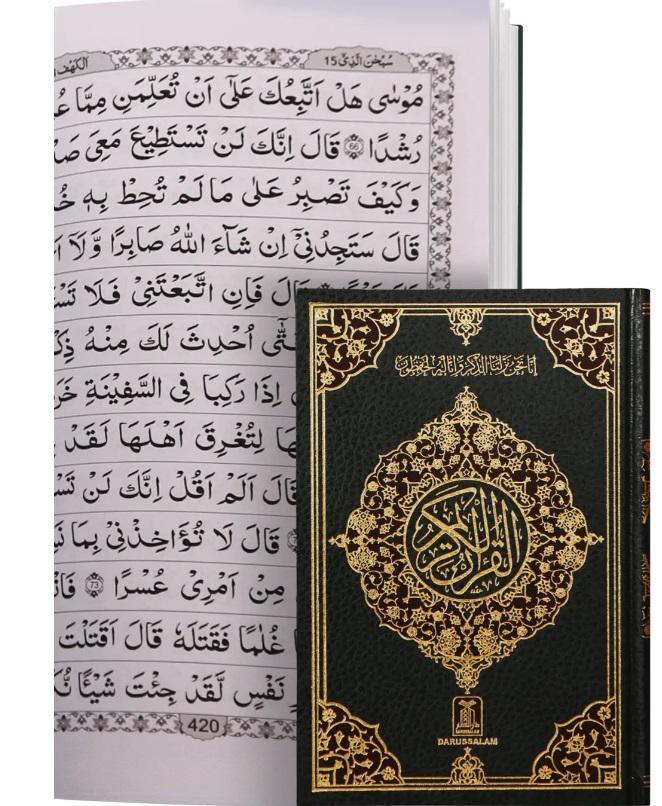 سُبْحٰنَ الَّذِیْٓ 15
الکہف
مُوْسٰی هَلْ اَتَّبِعُكَ عَلٰٓی اَنْ تُعَلِّمَنِ مِمَّا
رُشْدًا 66 قَالَ اِنَّكَ لَنْ تَسْتَطِیْعَ مَعِیَ
وَكَیْفَ تَصْبِرُ عَلٰی مَا لَمْ تُحِطْ بِهٖ
قَالَ سَتَجِدُنِیْٓ اِنْ شَآءَ اللّٰهُ صَابِرًا وَّلَاۤ
فَاِنِ اتَّبَعْتَنِیْ فَلَا
اُحْدِثَ لَكَ مِنْهُ
اِذَا رَكِبَا فِی السَّفِیْنَةِ
لِتُغْرِقَ اَهْلَهَا لَقَدْ
قَالَ اَلَمْ اَقُلْ اِنَّكَ لَنْ
قَالَ لَا تُؤَاخِذْنِیْ بِمَا
مِنْ اَمْرِیْ عُسْرًا 73
غُلٰمًا فَقَتَلَهٗ قَالَ اَقَتَلْتَ
نَفْسٍ لَقَدْ جِئْتَ شَیْـًٔا
420
إنا نحن نزلنا الذكر وإنا له لحافظون
القرآن الكريم
دارالسلام
DARUSSALAM